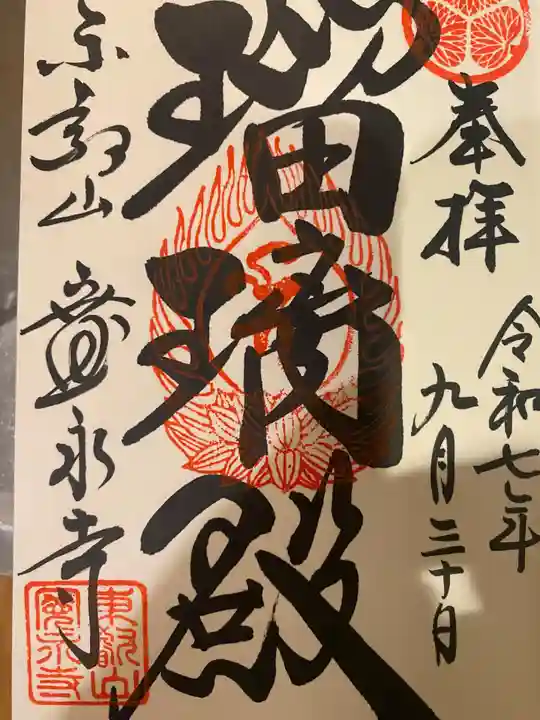 奉拝
令和七年
九月三十日
瑠璃殿
東叡山 寛永寺
東叡山
寛永寺